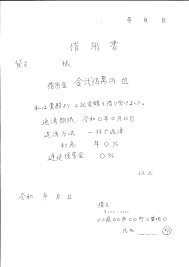 年 月 日
借用書
貸主 様
借用金 金弐佰萬円 也
私は貴殿より上記金額を借り受けました。
返済期限 令和0年0月0日
返済方法 一括で返済
利息 年0%
遅延損害金 0%
以上
令和 年 月 日
借主
〇〇県〇〇市〇〇町〇番地〇
氏名